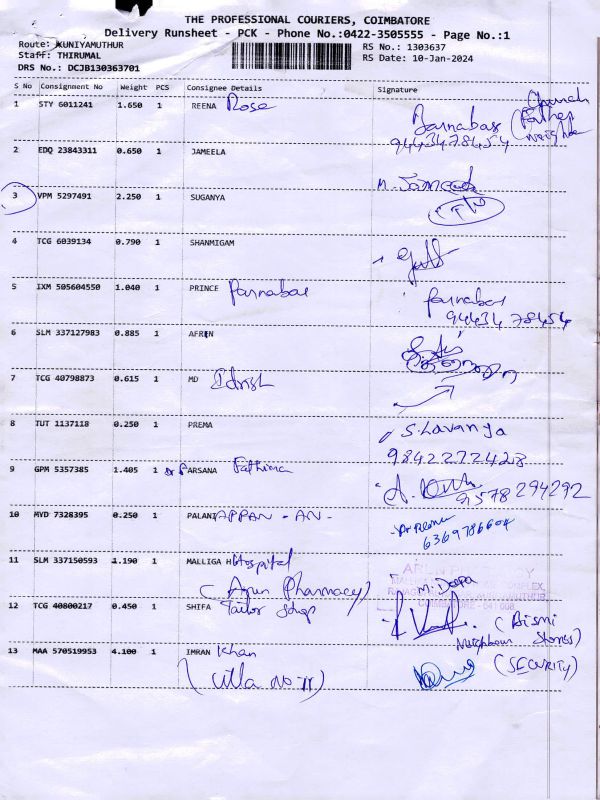 THE PROFESSIONAL COURIERS, COIMBATORE
Delivery Runsheet - PCK - Phone No.:0422-3505555 - Page No.:1
Route: KUNIYAMUTHUR
RS No.: 1303637
Staff: THIRUMAL
RS Date: 10-Jan-2024
DRS No.: DCJB130363701
S No Consignment No Weight PCS Consignee Details Signature
1 STY 6011241 1.650 1 REENA Rose Barnabas (Church Father
9443478454
2 EDQ 23843311 0.650 1 JAMEELA
M. Jameela
3 VPM 5297491 2.250 1 SUGANYA
4 TCG 6039134 0.790 1 SHANMIGAM
5 IXM 505604550 1.040 1 PRINCE Parnabas Parnabas
94434 78454
6 SLM 337127983 0.885 1 AFREN
7 TCG 40798873 0.615 1 MD Idrish
8 TUT 1137118 0.250 1 PREMA S. Lavanya
9842272428
9 GPM 5357385 1.405 1 Dr FARSANA Fathima
9578294292
10 MYD 7328395 0.250 1 PALANIAPPAN - AN -
6369786604
11 SLM 337150593 1.190 1 MALLIGA Hospital
(Arun Pharmacy) M. Deepa
COIMBATORE - 641 008
12 TCG 40800217 0.450 1 SHIFA Tailor Shop (Bismi
Neighbour Stores)
13 MAA 570519953 4.100 1 IMRAN Khan (SECURITY)
(Villa No 11)